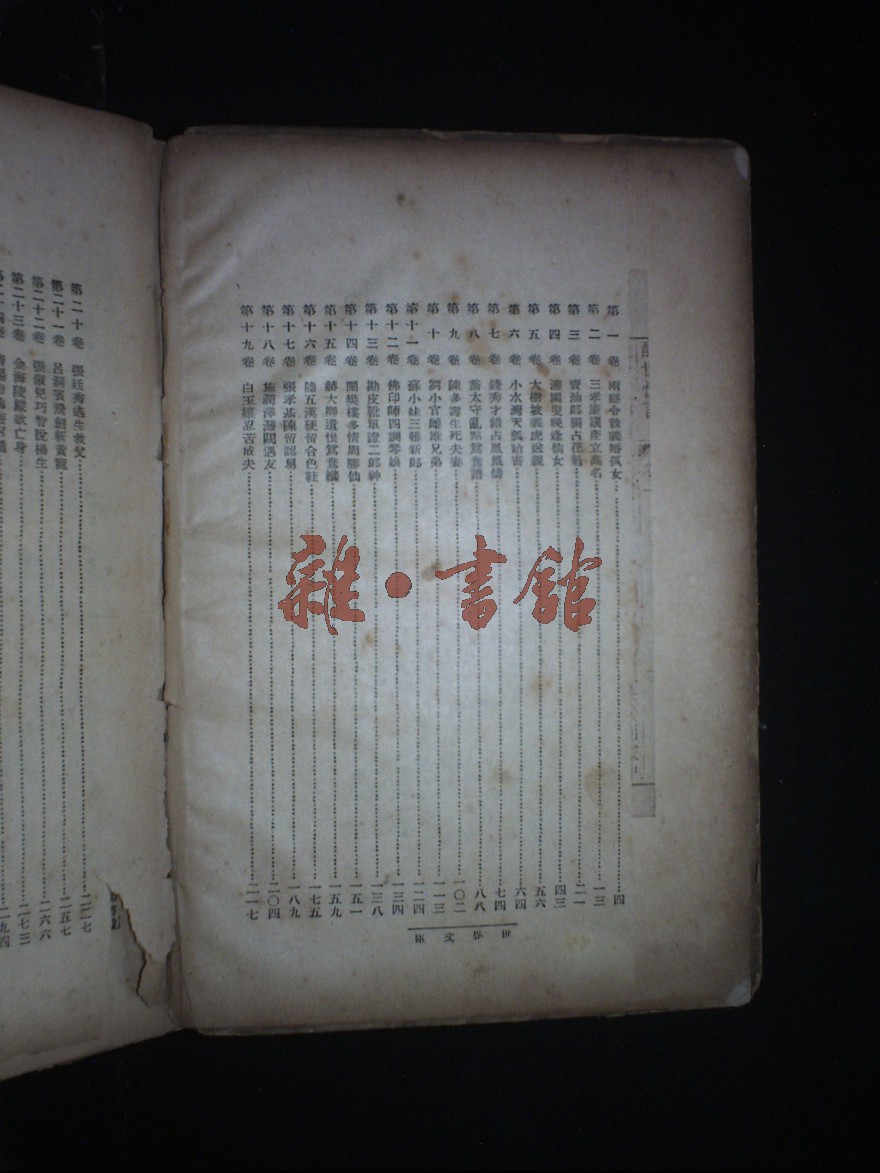 第一卷 兩縣令競義婚孤女 四
第二卷 三孝廉讓產立高名 一三
第三卷 賣油郎獨占花魁 二一
第四卷 灌園叟晚逢仙女 四三
第五卷 大樹坡義虎送親 五六
第六卷 小水灣天狐詒書 六四
第七卷 錢秀才錯占鳳凰儔 七四
第八卷 喬太守亂點鴛鴦譜 八八
第九卷 陳多壽生死夫妻 一〇二
第十卷 劉小官雌雄兄弟 一一三
第十一卷 蘇小妹三難新郎 一二四
第十二卷 佛印師四調琴娘 一三四
第十三卷 勘皮靴單證二郎神 一三八
第十四卷 鬧樊樓多情周勝仙 一五一
第十五卷 赫大卿遺恨鴛鴦縧 一五九
第十六卷 陸五漢硬留合色鞋 一七五
第十七卷 張孝基陳留認舅 一八九
第十八卷 施潤澤灘闕遇友 二〇四
第十九卷 白玉孃忍苦成夫 二一七
世界文庫
第二十卷 張廷秀逃生救父 二二七
第二十一卷 呂洞賓飛劍斬黃龍 二五七
第二十二卷 張淑兒巧智脫楊生 二六六
第二十三卷 金海陵縱欲亡身 二七三
雜·書館